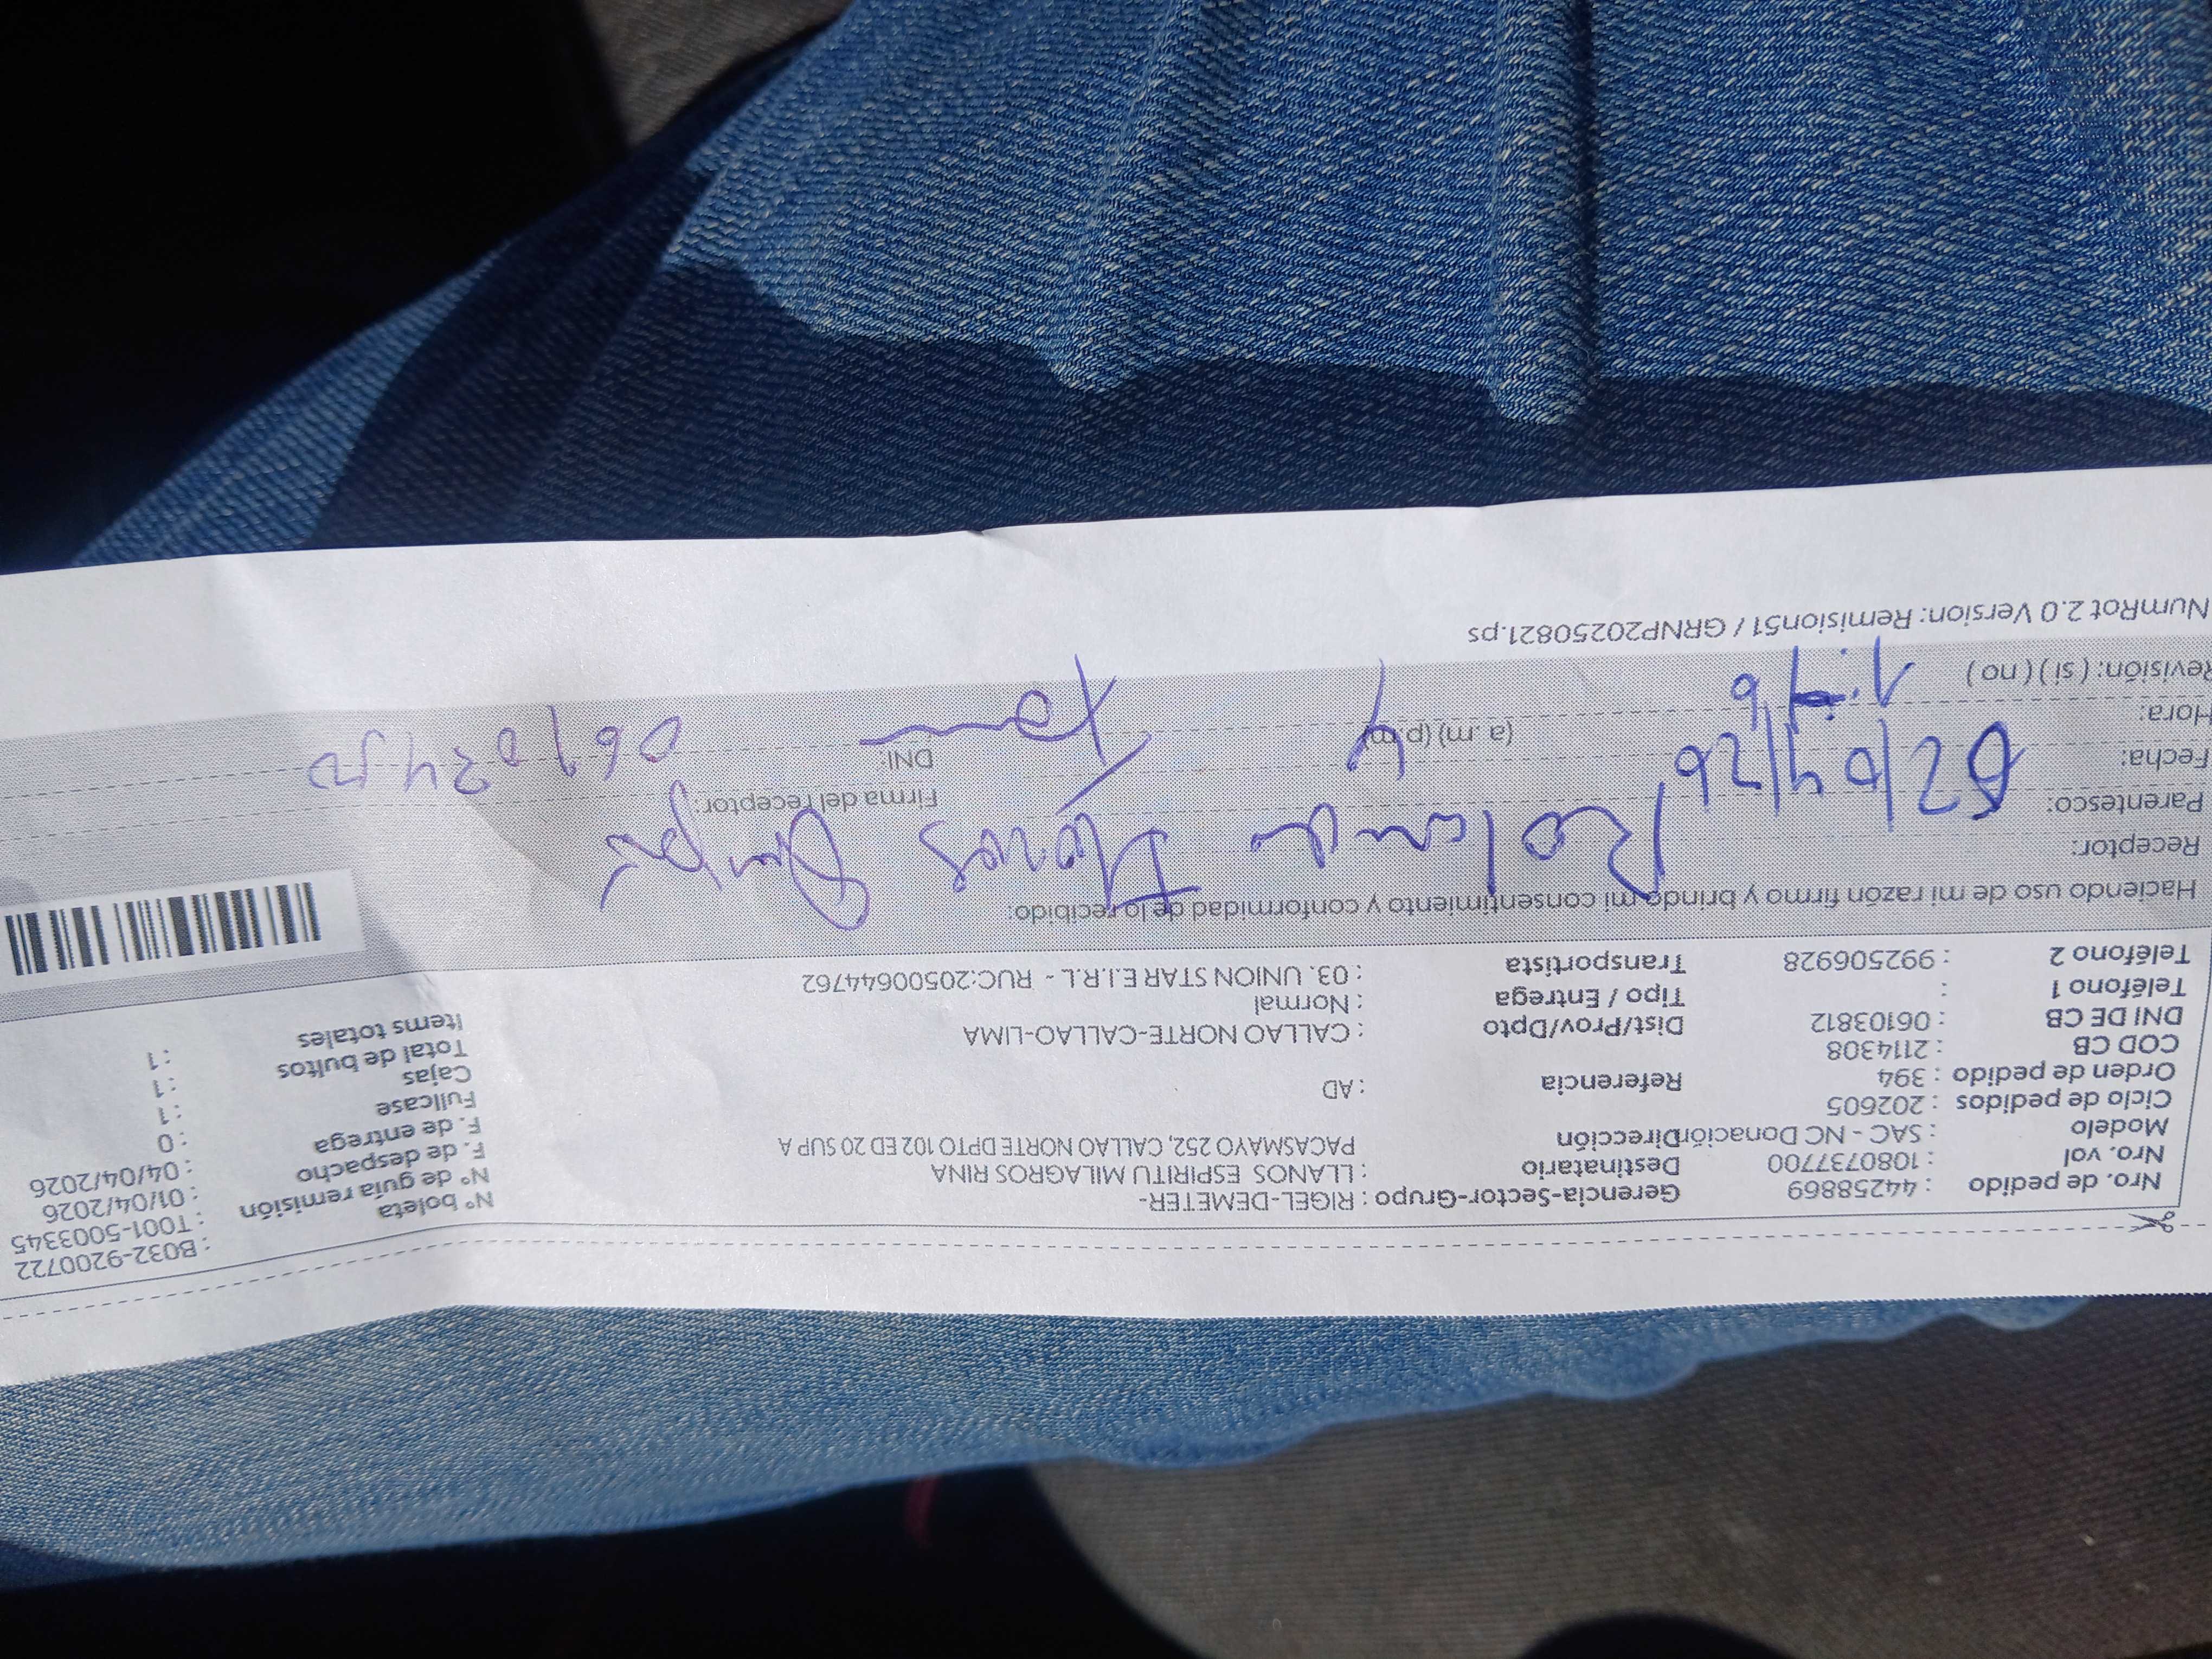 Nro. de pedido : 44258869 Gerencia-Sector-Grupo : RIGEL-DEMETER- N° boleta : B032-9200722
Nro. vol : 1080737700 Destinatario : LLANOS ESPIRITU MILAGROS RINA N° de guía remisión : T001-5003345
Modelo : SAC - NC Donación Dirección PACASMAYO 252, CALLAO NORTE DPTO 102 ED 20 SUP A F. de despacho : 01/04/2026
Ciclo de pedidos : 202605 F. de entrega : 04/04/2026
Orden de pedido : 394 Referencia : AD Fullcase : 0
COD CB : 2114308 Cajas : 1
DNI DE CB : 06103812 Dist/Prov/Dpto : CALLAO NORTE-CALLAO-LIMA Total de bultos : 1
Teléfono 1 : Tipo / Entrega : Normal Items totales : 1
Teléfono 2 : 992506928 Transportista : 03. UNION STAR E.I.R.L - RUC:20500644762
Haciendo uso de mi razón firmo y brindo mi consentimiento y conformidad de lo recibido:
Receptor: Rolando
Parentesco: Firma del receptor:
Fecha: 02/04/26 DNI:
Hora: (a. m) (p.m)
Revisión: ( si ) ( no )
NumRot 2.0 Version: Remision51 / GRNP20250821.ps